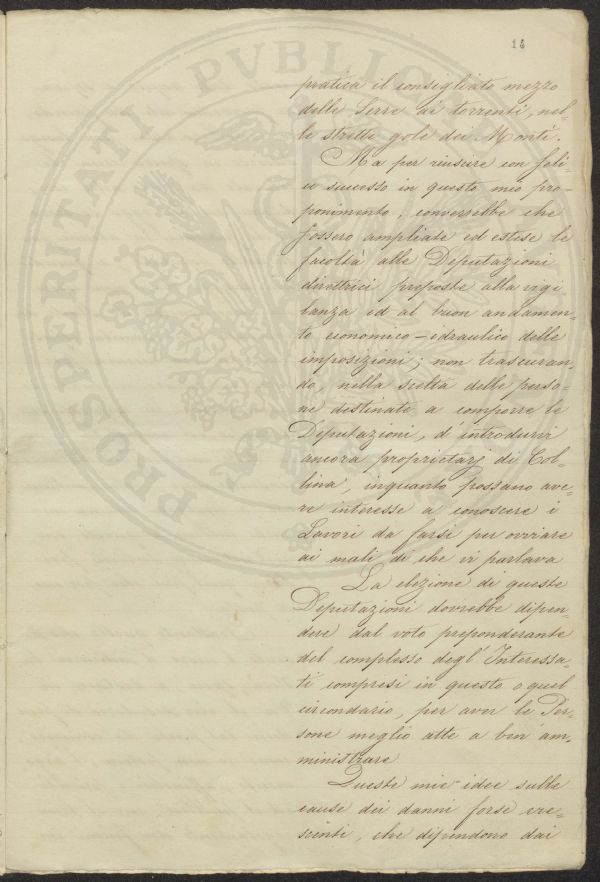 14
pratica il consigliato mezzo
delle Serre ai torrenti, nel-
le strette gole dei Monti.
Ma per riuscire con feli-
ce successo in questo mio pro-
ponimento, converrebbe che
fossero ampliate ed estese le
facoltà alle Deputazioni
direttrici preposte alla vigi
lanza ed al buon andamen-
to economico-idraulico delle
imposizioni; non trascuran-
do, nella scelta delle perso-
ne destinate a comporre le
Deputazioni, d'introdurvi
ancora proprietarj di Col-
lina, inquanto possano ave-
re interesse a conoscere i
Lavori da farsi per ovviare
ai mali di che vi parlava
La elezione di queste
Deputazioni dovrebbe dipen-
dere dal voto preponderante
del complesso degl'Interessa-
ti compresi in questo o quel
circondario, per aver le Per-
sone meglio atte a ben am-
ministrare
Queste mie idee sulle
cause dei danni forse cre-
scenti, che dipendono dai
PROSPERITATI PVBLIC